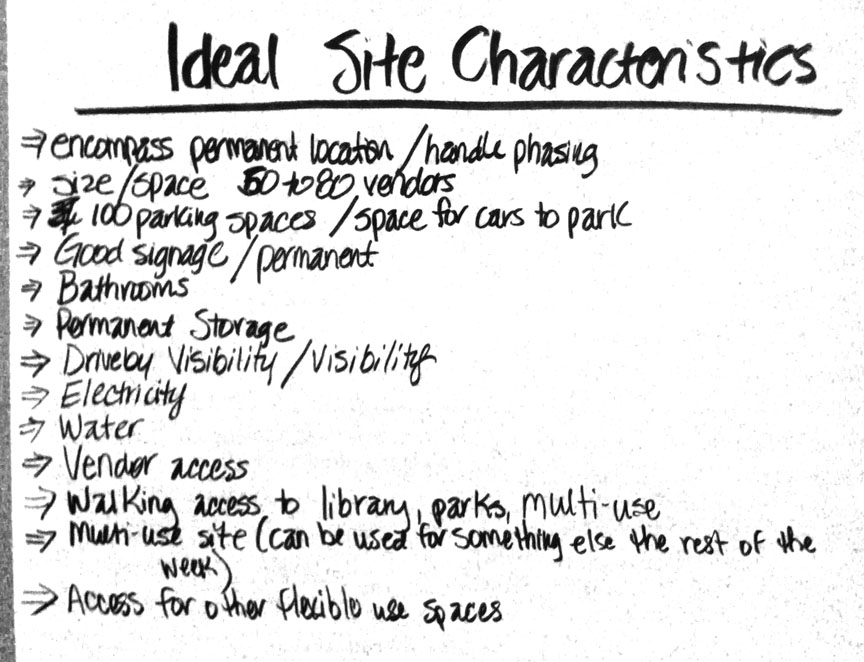 Ideal Site Characteristics
⇒ encompass permanent location / handle phasing
⇒ Size/space 50 to 80 vendors
⇒ 100 parking spaces / space for cars to park
⇒ Good signage / permanent
⇒ Bathrooms
⇒ Permanent Storage
⇒ Driveby Visibility / Visibility
⇒ Electricity
⇒ Water
⇒ Vendor access
⇒ Walking access to library, parks, multi-use
⇒ Multi-use site (can be used for something else the rest of the
week)
⇒ Access for other flexible use spaces